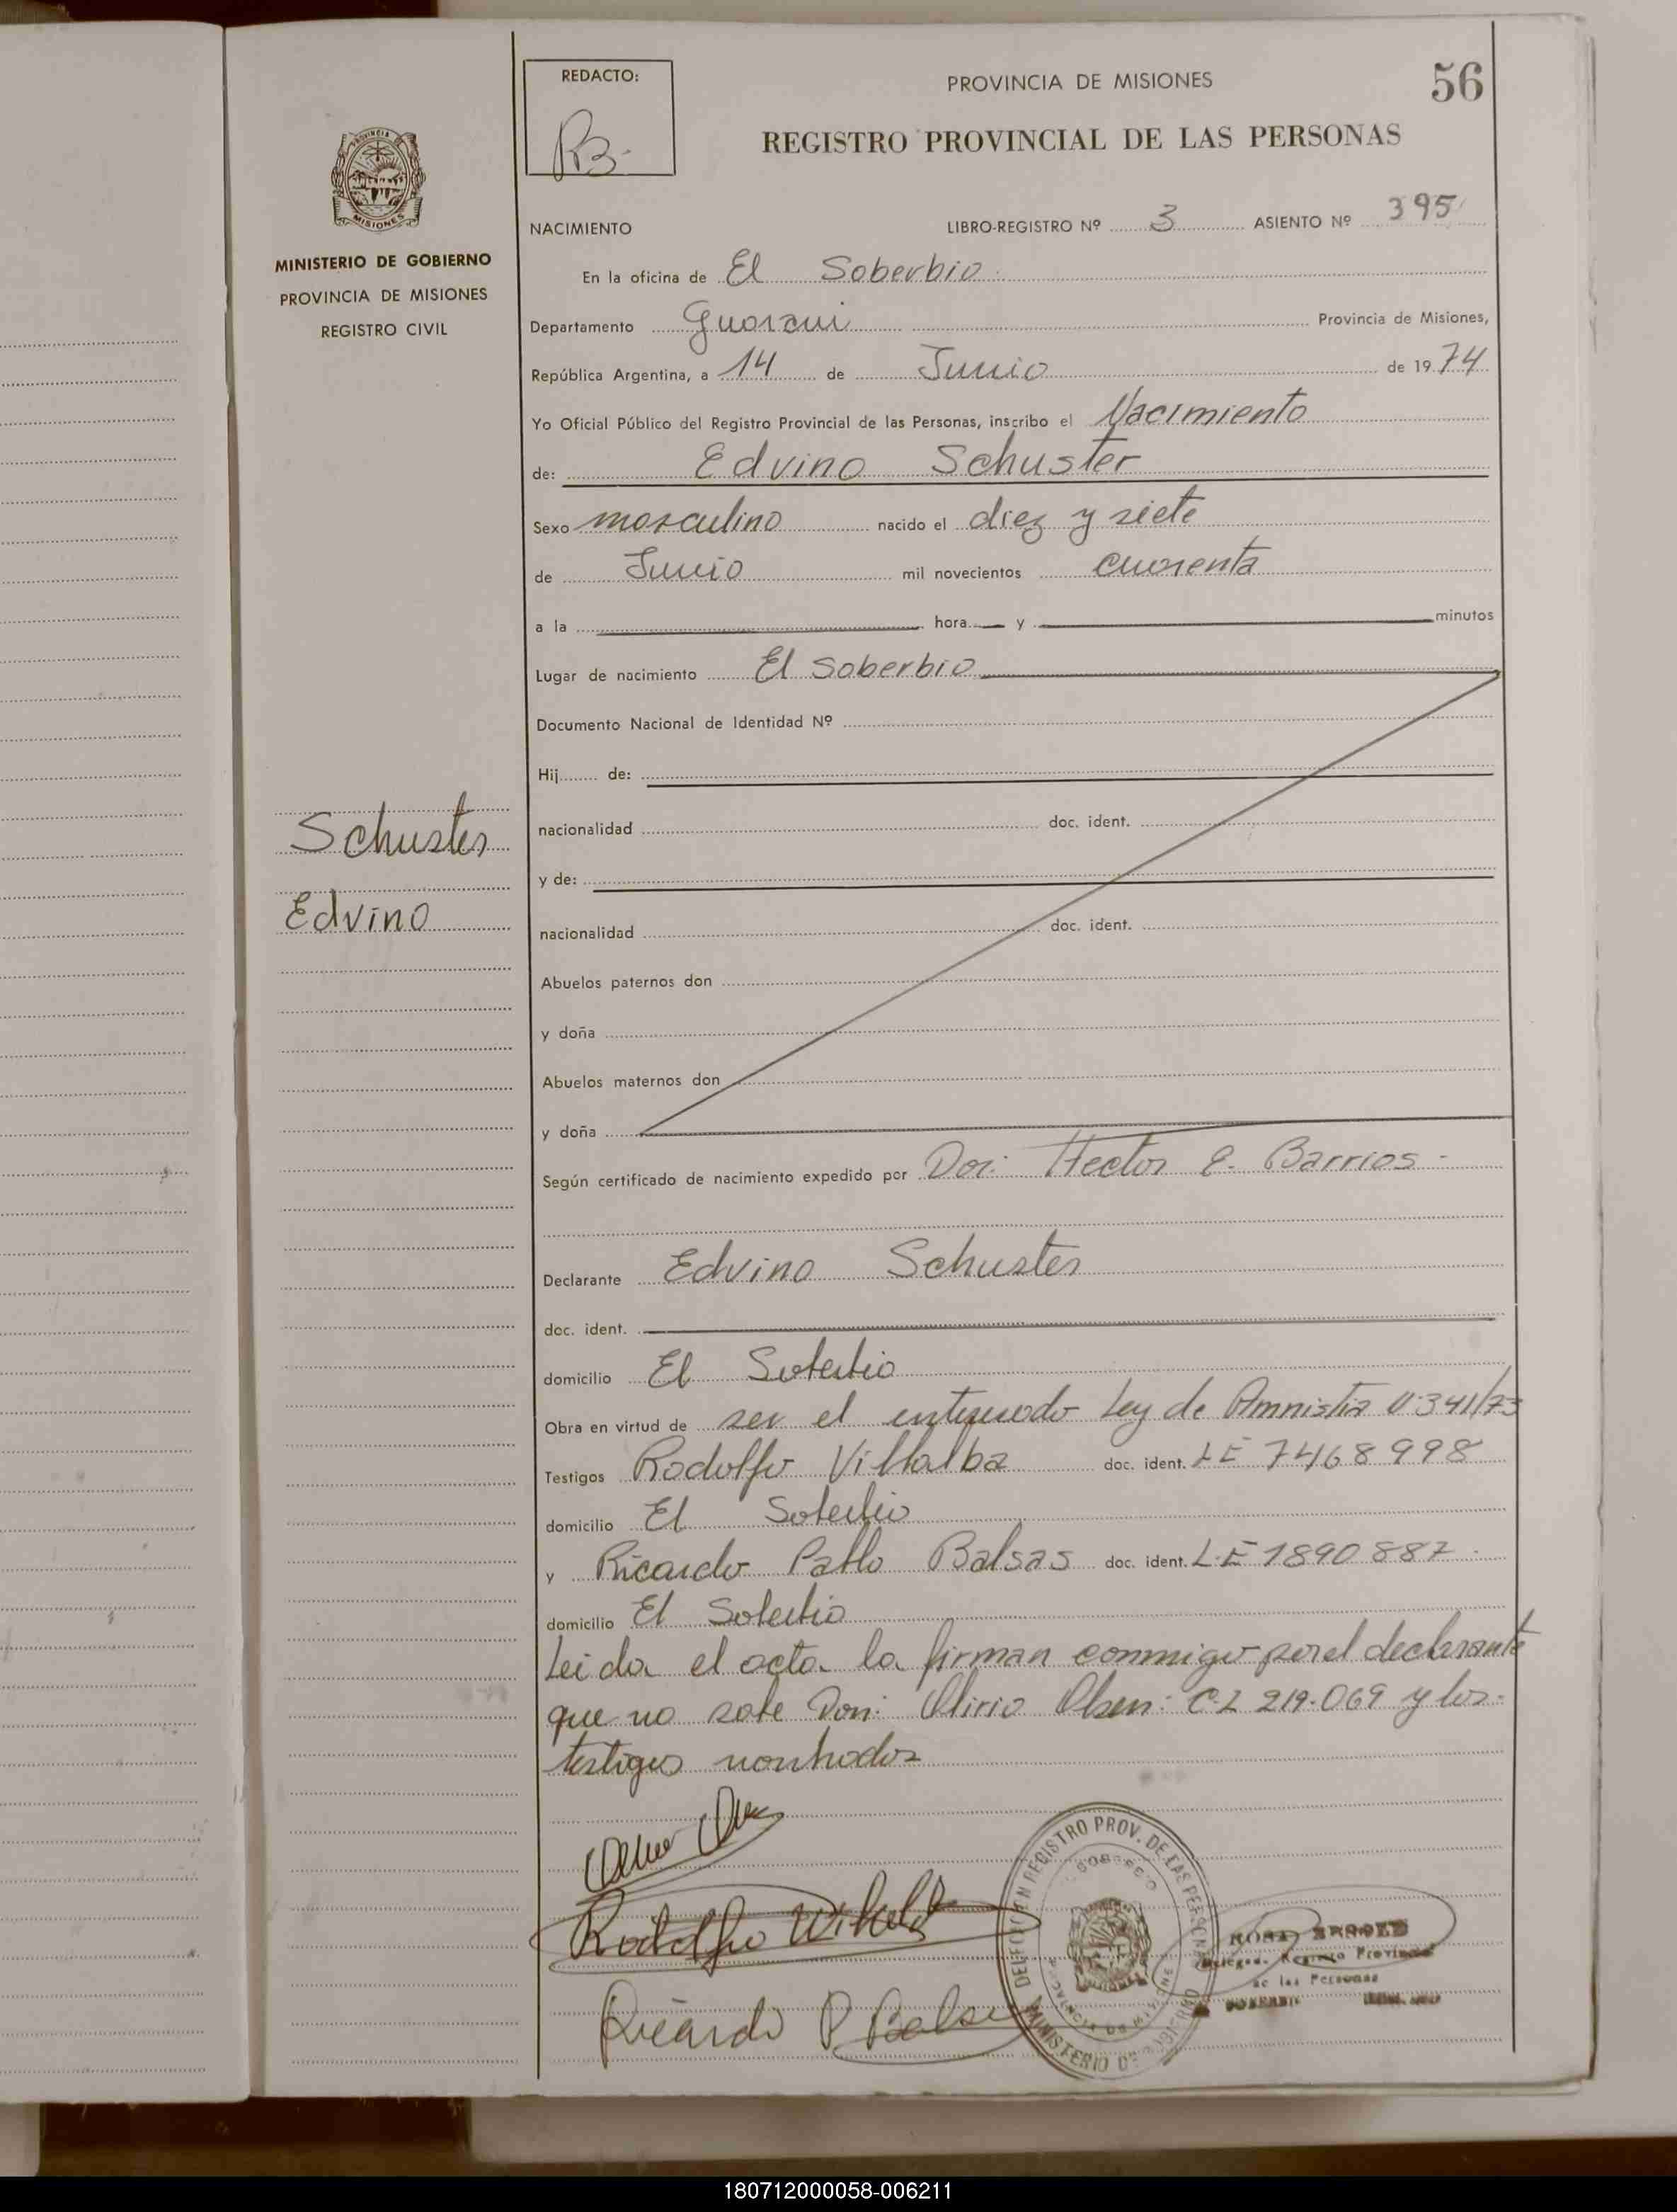 REDACTO:
RB.
PROVINCIA DE MISIONES
56
REGISTRO PROVINCIAL DE LAS PERSONAS
PROVINCIA
MISIONES
MINISTERIO DE GOBIERNO
PROVINCIA DE MISIONES
REGISTRO CIVIL
NACIMIENTO LIBRO-REGISTRO Nº 3 ASIENTO Nº 395
En la oficina de El Soberbio.
Departamento Guarani Provincia de Misiones,
República Argentina, a 14 de Junio de 1974
Yo Oficial Público del Registro Provincial de las Personas, inscribo el Nacimiento
de: Edvino Schuster
Sexo masculino nacido el diez y siete
de Junio mil novecientos cuarenta
a la hora y minutos
Lugar de nacimiento El Soberbio
Documento Nacional de Identidad Nº
Hij de:
nacionalidad doc. ident.
y de:
nacionalidad doc. ident.
Abuelos paternos don
y doña
Abuelos maternos don
y doña
Schuster
Edvino
Según certificado de nacimiento expedido por Dor. Hector E. Barrios -
Declarante Edvino Schuster
doc. ident.
domicilio El Soberbio
Obra en virtud de ser el interesado Ley de Amnistia Nº 341/73
Testigos Rodolfo Villalba doc. ident. LE 7468998
domicilio El Soberbio
y Ricardo Pablo Balsas doc. ident. L.E 1890887.
domicilio El Soberbio
Leida el acta la firman conmigo por el declarante
que no sabe Don: Olirio Olsen: C.I 219.069 y los
testigos nombrados
Rodolfo Villalba
Ricardo P Balsa
REGISTRO PROV. DE LAS PERSONAS
MINISTERIO DE GOBIERNO
PROVINCIA DE MISIONES
Registro Provincial
de las Personas
180712000058-006211